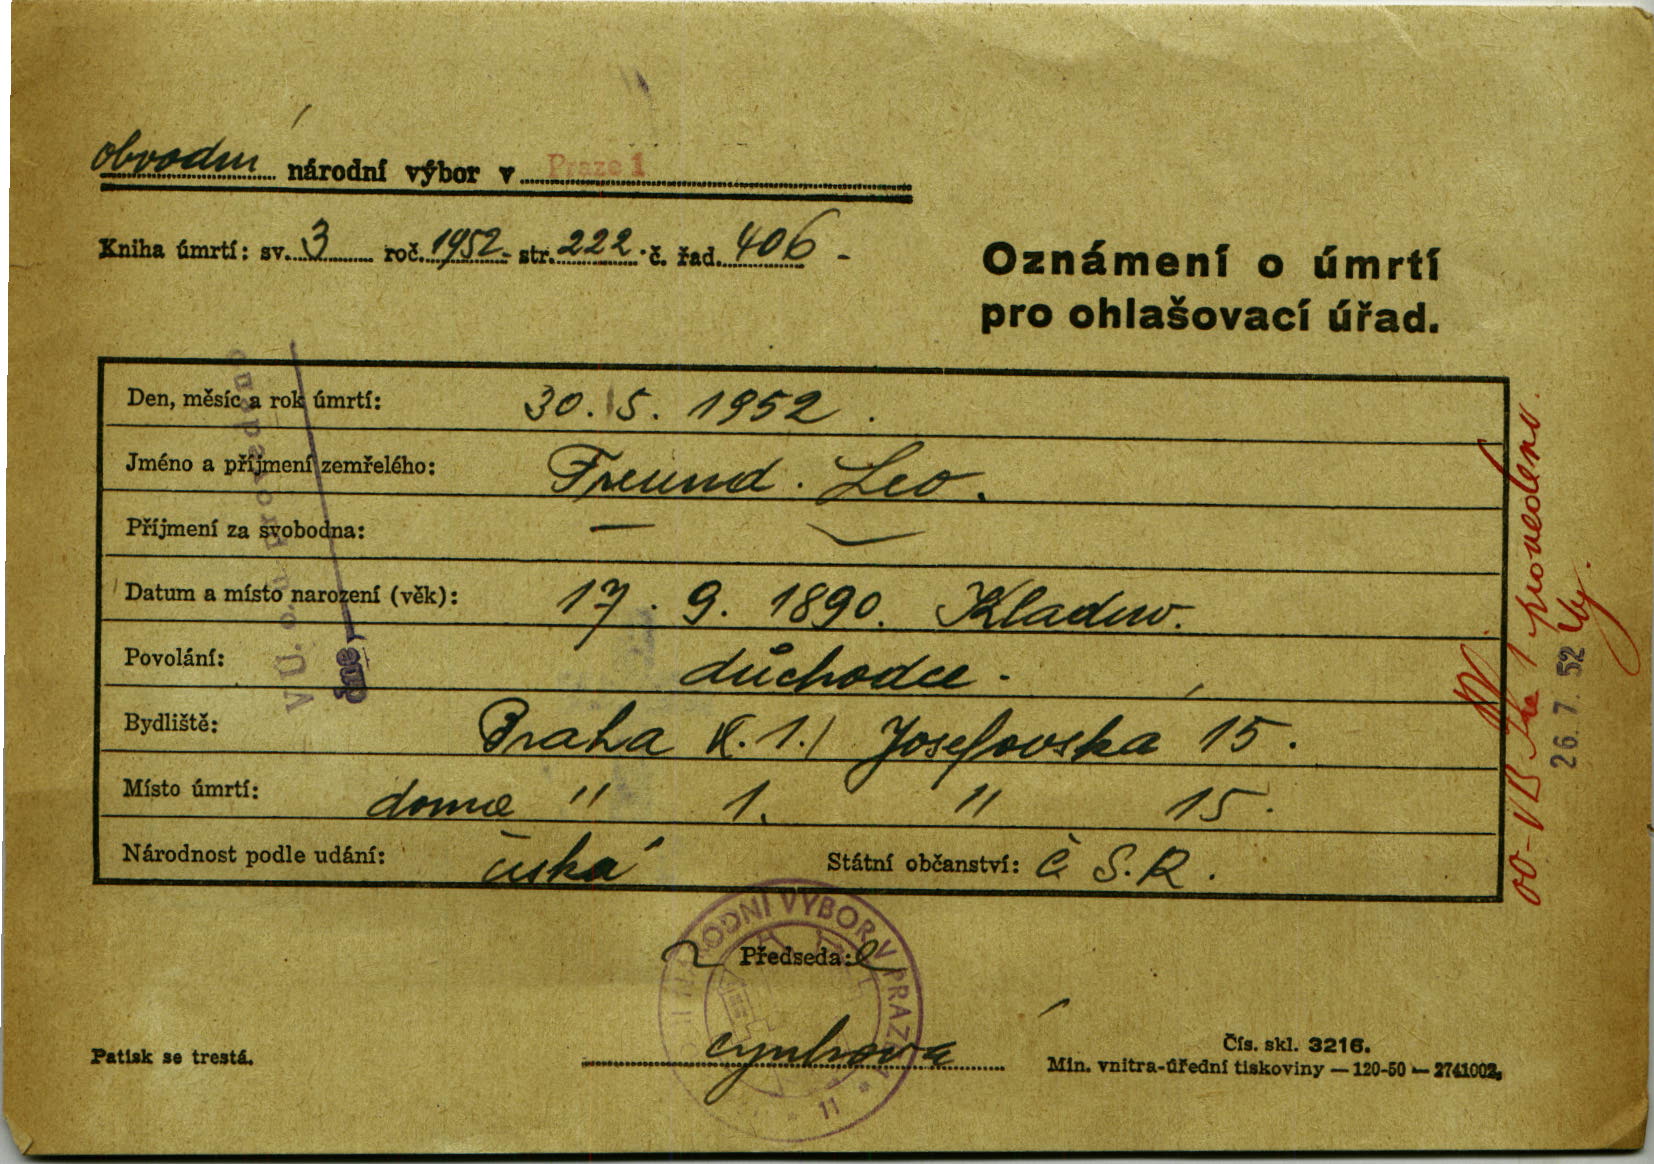 obvodní národní výbor v Praze 1
Kniha úmrtí: sv. 3 roč. 1952 - str. 222 č. řad. 406 -
Oznámení o úmrtí
pro ohlašovací úřad.
Den, měsíc a rok úmrtí: 30. 5. 1952.
Jméno a příjmení zemřelého: Freund. Leo.
Příjmení za svobodna: —
Datum a místo narození (věk): 17. 9. 1890. Kladno.
Povolání: důchodce.
Bydliště: Praha 1. Josefovska 15.
Místo úmrtí: doma " 1. " 15.
Národnost podle udání: česká Státní občanství: Č.S.R.
Předseda:
NÁRODNÍ VÝBOR V PRAZE
* 11 *
Patisk se trestá.
Čís. skl. 3216.
Min. vnitra-úřední tiskoviny — 120-50 — 2741002,
VÚ.
dne
OO-VB 1 provedeno.
26. 7. 52